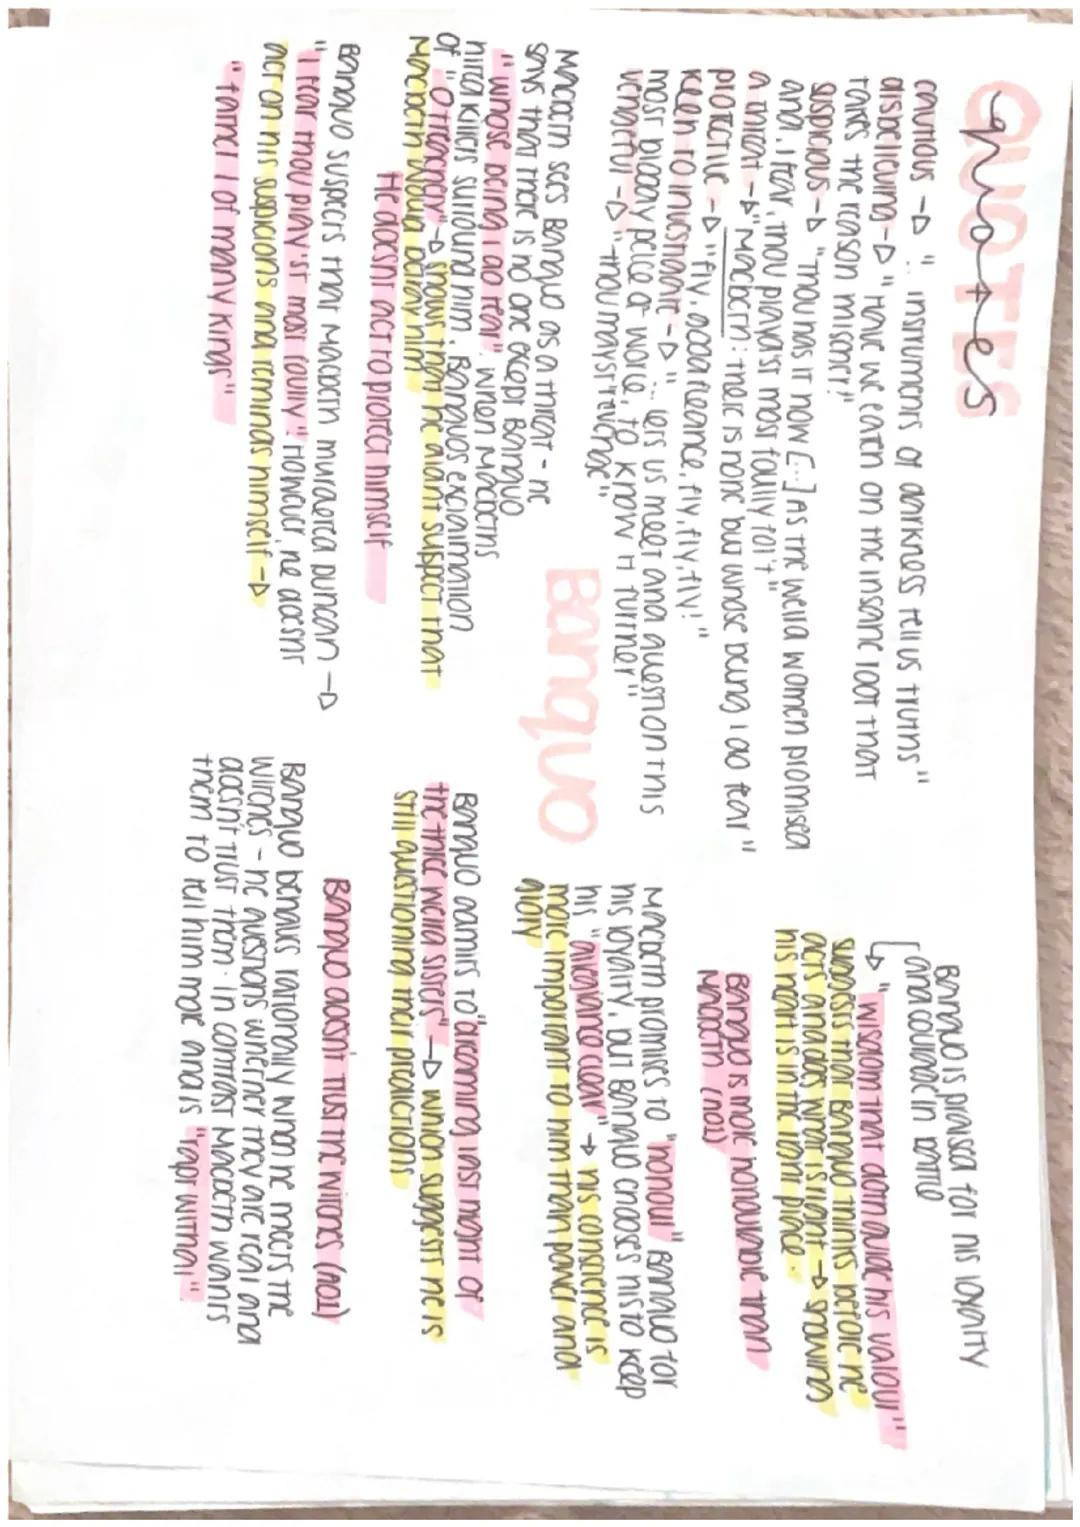 QUOTES
quotes
cautious → "... instruments of darkness tell us truths"
disbelieving → "Have we eaten on the insane root that
takes the reason prisoner?"
suspicious → "Thou has it now [...] As the weird women promised
and, I fear, thou playdst most foully tol't"
a threat → "Macbeth: there is none but whose being I do fear"
protective → "fly, good fleance, fly, fly, fly!"
keen to investigate → "... lets us meet and question this
most bloody peice of work, to know it further"
vengeful → "thou mayst revenge"
Banquo
Macbeth sees Banquo as a threat - he
says that there is no one except Banquo
"whose being I do fear". When Macbeths
hired killers surround him, Banquos exclaimation
of "O treachery" → shows that he didnt suspect that
Macbeth would betray him
He doesnt act to protect himself
Banquo suspects that Macbeth murdered Duncan →
"I fear thou play'st most foully" However, he doesnt
act on his suspicions and reminds himself →
"father of many kings"
Banquo is praised for his loyalty
and courage in battle
↳ "wisdom that doth guide his valour"
suggests that Banquo thinks before he
acts and does what is right → showing
his heart is in the right place.
Banquo is more honourable than
Macbeth (no1)
Macbeth promises to "honour" Banquo for
his loyalty, but Banquo chooses histo keep
his "allegiance clear" → his conscience is
more important to him than power and
glory
Banquo admits to "dreaming last night of
the three weird sisters" → which suggests he is
still questioning their predictions
Banquo doesnt trust the witches (no1)
Banquo behaves rationally when he meets the
witches - he questions whether they are real and
doesn't trust them. In contrast Macbeth wants
them to tell him more and is "rapt withal"